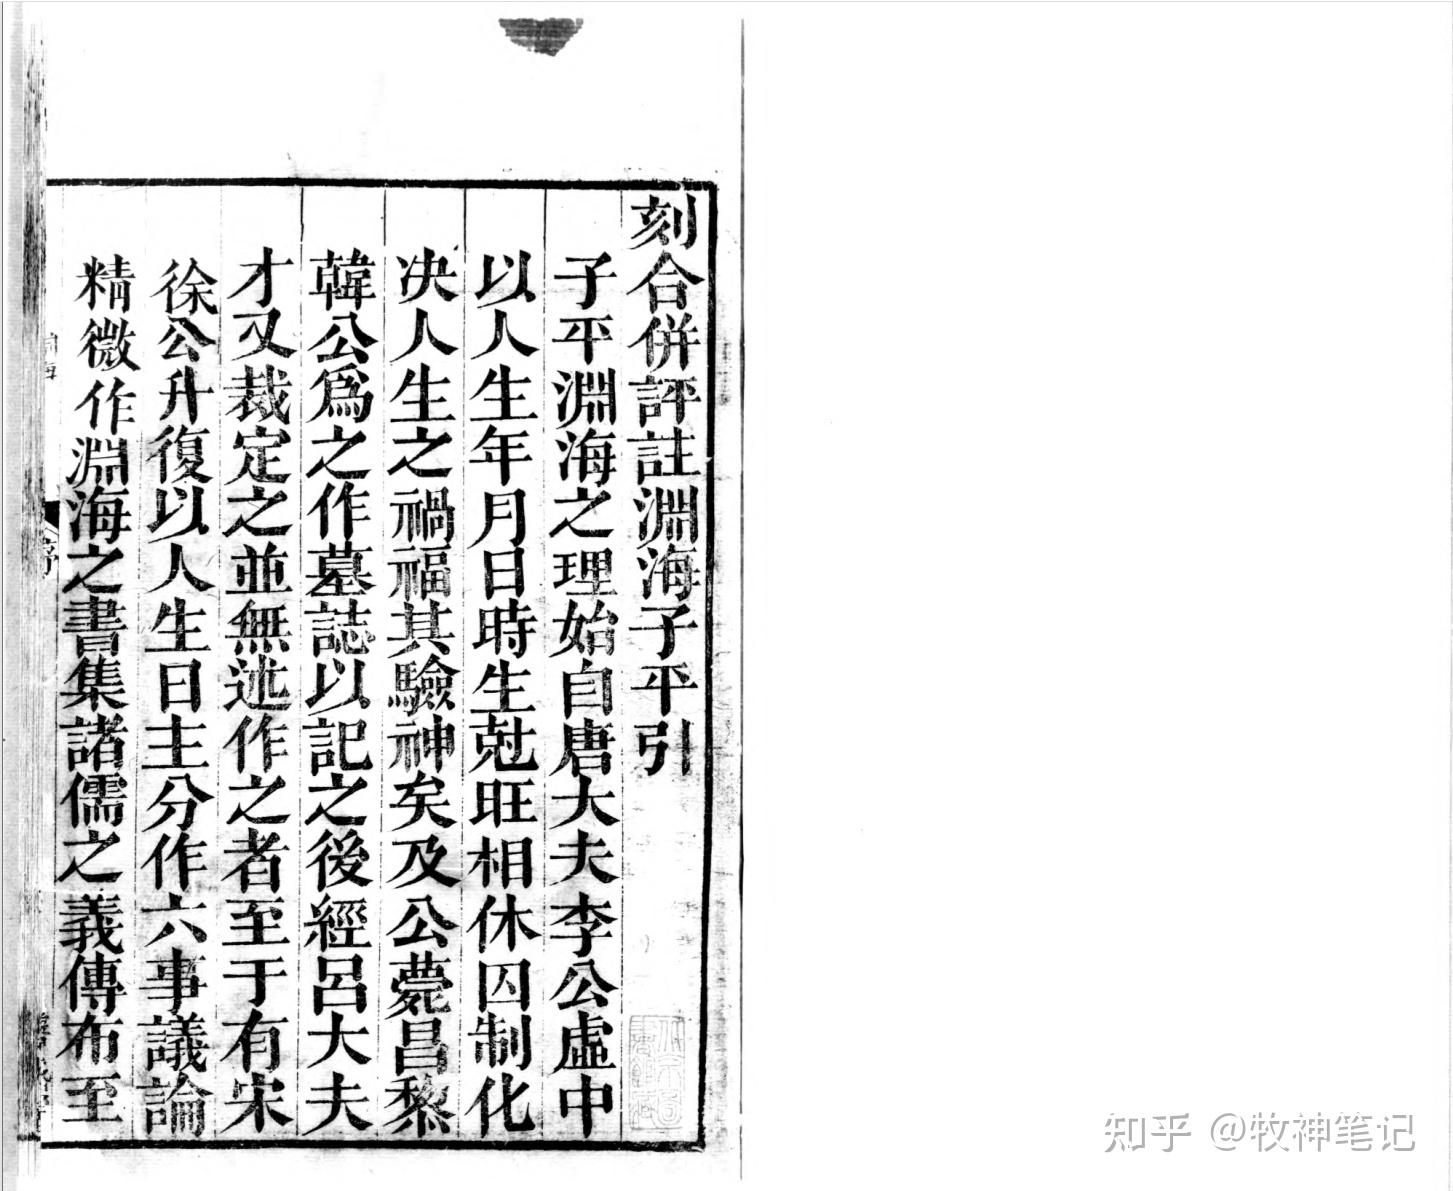 刻合併評註淵海子平引
子平淵海之理始自唐大夫李公虛中
以人生年月日時生尅旺相休囚制化
决人生之禍福其驗神矣及公薨昌黎
韓公爲之作墓誌以記之後經呂大夫
才又裁定之並無述作之者至于有宋
徐公升復以人生日主分作六事議論
精微作淵海之書集諸儒之義傳布至
序
知乎 @牧神笔记